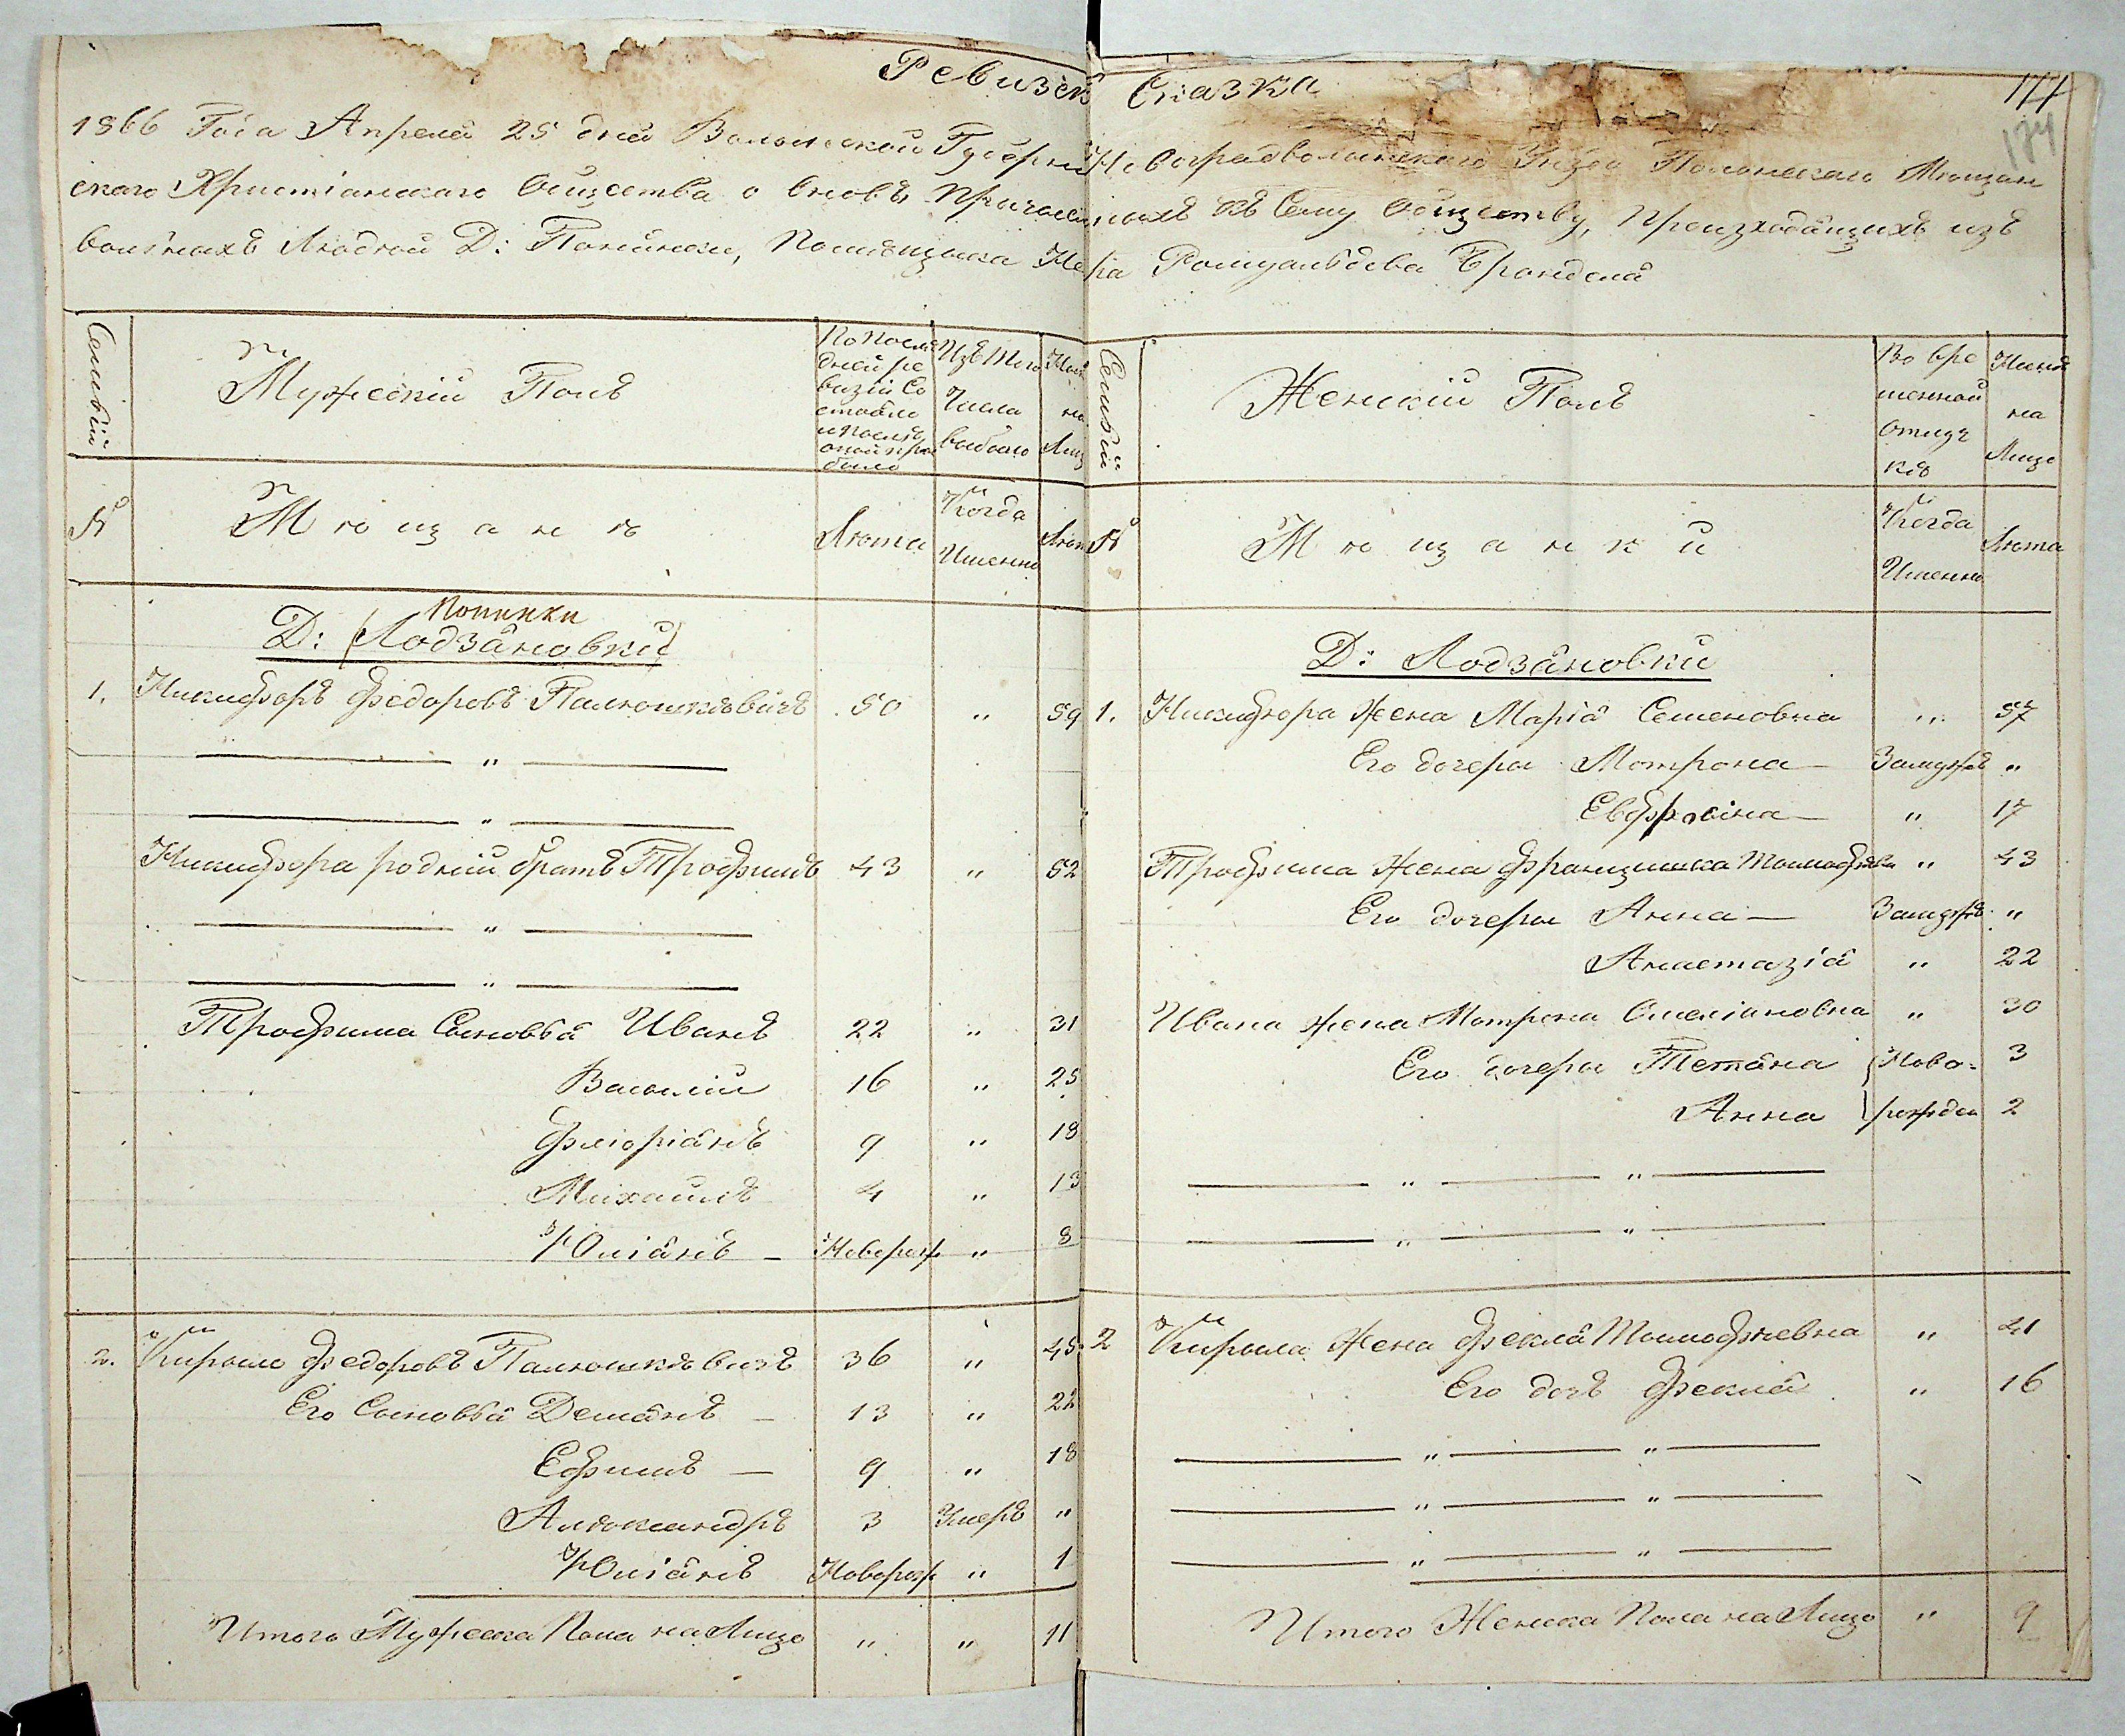 Ревизск Сказка
177
174
1866 Года Апреля 25 дня Волынской Губерніи Новоградволынского Уѣзда Полонского Мѣщан
ского Христіанского Общества о вновь причислен ныхъ къ Сему Обществу, произходящихъ изъ
вольныхъ Людей Д: Понинки, Помѣщика Ромуальдова
Семьи
Мужескій Полъ
По послѣ
дней ре
визіи Со
стояло
и послѣ
оной при
было
Изъ того
Числа
выбыло
Нын
на
Лиц
Семьи
Женскій Полъ
Во вре
менной
отлуч
кѣ
Нынѣ
на
Лицо
№
Мѣщанѣ
Лѣта
Когда
Именно
Лѣт
№
Мѣщанки
Когда
Именно
Лѣта
Понинки
Д: (Лодзяновки)
Д: Лодзяновки
1. Никифоръ Федоровъ Палюшкѣвичъ 50 " 59
1. Никифора Жена Марія Семеновна " 57
— " —
Его дочеры Мотрона — Замужѣ "
— " —
Евфросина — " 17
Никифора родній братъ Трофимъ 43 " 52
Трофима Жена Францишка " 43
— " —
Его дочеры Анна — Замужѣ "
— " —
Анастазія " 22
Трофима Сыновья Иванъ 22 " 31
Ивана жена Мотрона Омеліановна " 30
Василій 16 " 25
Его дочеры Тетяна Ново= 3
Фліоріянъ 9 " 18
Анна рожден 2
Михаилъ 4 " 13
— " — " —
Юліянъ — Новорож " 8
— " — " —
2. Кирыло Федоровъ Палюшкѣвичъ 36 " 45
2 Кирыла Жена Фекла Тимофѣевна " 41
Его Сыновья Демянъ — 13 " 22
Его дочъ Фекла " 16
Ефимъ — 9 " 18
— " — " —
Алѣксандръ 3 Умеръ "
— " — " —
Юліянъ Новорож " 1
— " — " —
Итого Мужеска Пола на Лицо " " 11
Итого Женска Пола на Лицо " 9